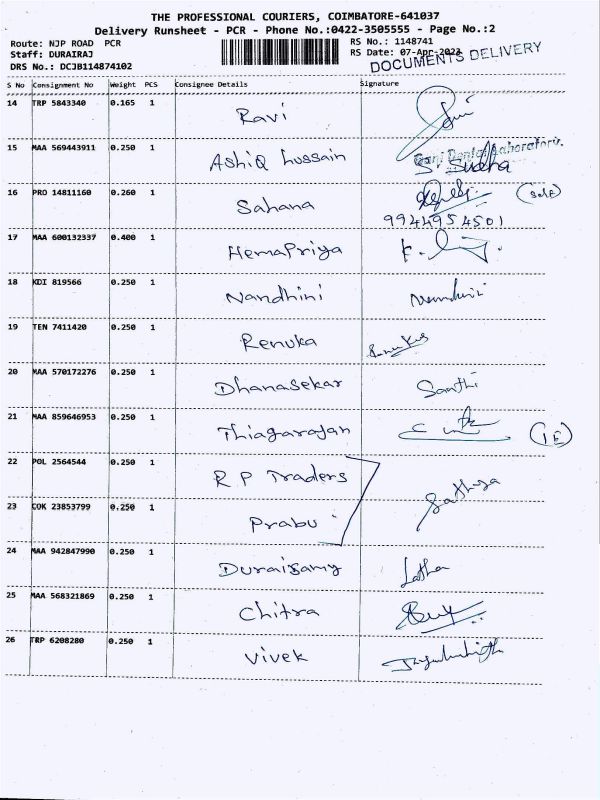 THE PROFESSIONAL COURIERS, COIMBATORE-641037
Delivery Runsheet - PCR - Phone No.:0422-3505555 - Page No.:2
Route: NJP ROAD PCR RS No.: 1148741
Staff: DURAIRAJ RS Date: 07-Apr-2023
DRS No.: DCJB114874102 DOCUMENTS DELIVERY
S No Consignment No Weight PCS Consignee Details Signature
14 TRP 5843340 0.165 1 Ravi
15 MAA 569443911 0.250 1 Ashiq hussain S. Sudha
16 PRO 14811160 0.260 1 Sahana
9944954501
17 MAA 600132337 0.400 1 HemaPriya
18 KDI 819566 0.250 1 Nandhini
19 TEN 7411420 0.250 1 Renuka
20 MAA 570172276 0.250 1 Dhanasekar Santhi
21 MAA 859646953 0.250 1 Thiagarajan
22 POL 2564544 0.250 1 R P Traders
23 COK 23853799 0.250 1 Prabu
24 MAA 942847990 0.250 1 Duraisamy Latha
25 MAA 568321869 0.250 1 Chitra
26 TRP 6208280 0.250 1 Vivek